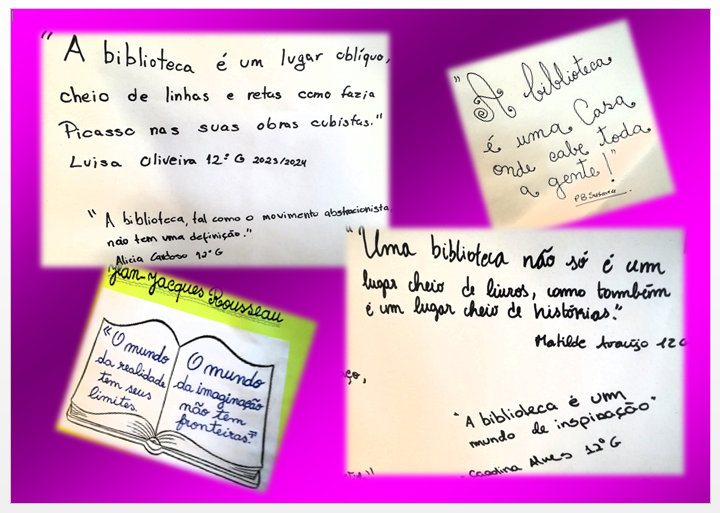 "A biblioteca é um lugar oblíquo,
cheio de linhas e retas como fazia
Picasso nas suas obras cubistas."
Luisa Oliveira 12º G 2023/2024
"A biblioteca, tal como o movimento abstracionista
não tem uma definição."
Alicia Cardoso 12º G
"A biblioteca
é uma Casa
onde cabe toda
a gente!"
Jean-Jacques Rousseau
"O mundo
da realidade
tem seus
limites.
O mundo
da imaginação
não tem
fronteiras."
"Uma biblioteca não só é um
lugar cheio de livros, como também
é um lugar cheio de histórias."
Matilde Araújo 12
"A biblioteca é um
mundo de inspiração"
Carolina Alves 12º G